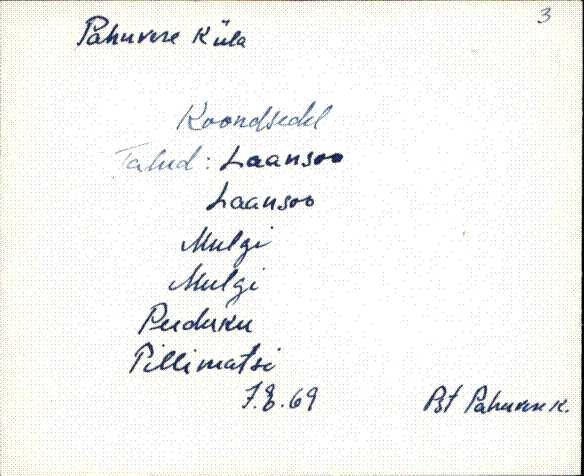 3
Pahuvere Küla
Koondsedel
Talud: Laansoo
Laansoo
Mulgi
Mulgi
Peeduku
Pillimatsi
7.8.69 Pst Pahuvere k.